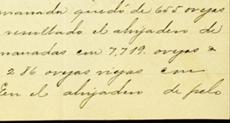 manada quedó de 655 ovejas
resultado el ahijadero de
manadas con 7,719. ovejas &
286 ovejas viejas con
En el ahijadero de pelo